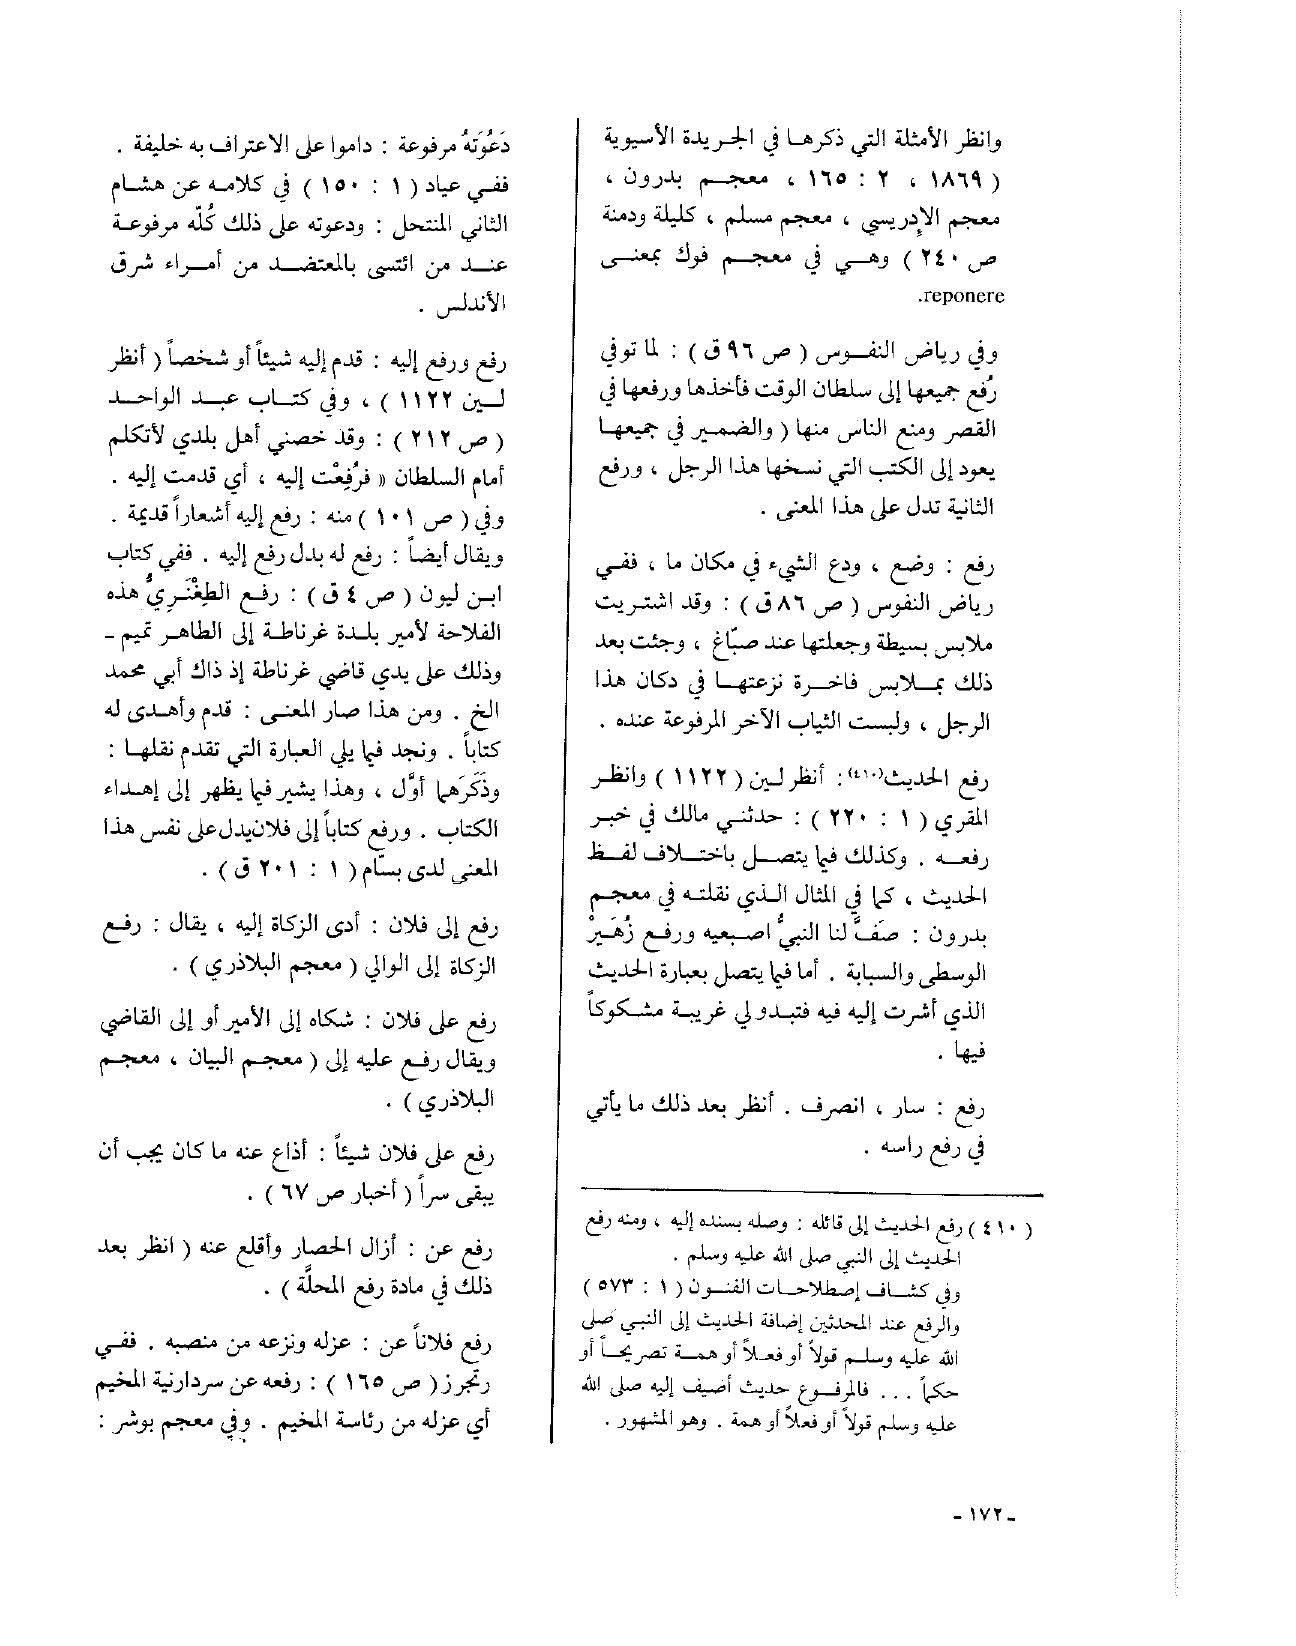 وانظر الأمثلة التي ذكرها في الجريدة الأسيوية
( ١٨٦٩ ، ٢ : ١٦٥ ، معجم بدرون ،
معجم الإدريسي ، معجم مسلم ، كليلة ودمنة
ص ٢٤٠ ) وهي في معجم فوك بمعنى
reponere.
وفي رياض النفوس ( ص ٩٦ ق ) : لما توفي
رُفع جميعها إلى سلطان الوقت فأخذها ورفعها في
القصر ومنع الناس منها ( والضمير في جميعها
يعود إلى الكتب التي نسخها هذا الرجل ، ورفع
الثانية تدل على هذا المعنى .
رفع : وضع ، ودع الشيء في مكان ما ، ففي
رياض النفوس ( ص ٨٦ ق ) : وقد اشتريت
ملابس بسيطة وجعلتها عند صبّاغ ، وجئت بعد
ذلك بملابس فاخرة نزعتها في دكان هذا
الرجل ، ولبست الثياب الآخر المرفوعة عنده .
رفع الحديث(٤١٠) : أنظر لين ( ١١٢٢ ) وانظر
المقري ( ١ : ٢٢٠ ) : حدثني مالك في خبر
رفعه . وكذلك فيما يتصل باختلاف لفظ
الحديث ، كما في المثال الذي نقلته في معجم
بدرون : صَفَّ لنا النبيُّ اصبعيه ورفع زُهَيْرْ
الوسطى والسبابة . أما فيما يتصل بعبارة الحديث
الذي أشرت إليه فيه فتبدو لي غريبة مشكوكاً
فيها .
رفع : سار ، انصرف . أنظر بعد ذلك ما يأتي
في رفع راسه .
( ٤١٠ ) رفع الحديث إلى قائله : وصله بسنده إليه ، ومنه رفع
الحديث إلى النبي صلى الله عليه وسلم .
وفي كشاف إصطلاحات الفنون ( ١ : ٥٧٣ )
والرفع عند المحدثين إضافة الحديث إلى النبي صلى
الله عليه وسلم قولاً أو فعلاً أو همة تصريحاً أو
حكماً ... فالمرفوع حديث أضيف إليه صلى الله
عليه وسلم قولاً أو فعلاً أو همة . وهو المشهور .
دَعْوَتَهُ مرفوعة : داموا على الاعتراف به خليفة .
ففي عباد ( ١ : ١٥٠ ) في كلامه عن هشام
الثاني المنتحل : ودعوته على ذلك كُلّه مرفوعة
عند من ائتسى بالمعتضد من أمراء شرق
الأندلس .
رفع ورفع إليه : قدم إليه شيئاً أو شخصاً ( أنظر
لين ١١٢٢ ) ، وفي كتاب عبد الواحد
( ص ٢١٢ ) : وقد خصني أهل بلدي لأتكلم
أمام السلطان « فرُفِعْت إليه ، أي قدمت إليه .
وفي ( ص ١٠١ ) منه : رفع إليه أشعاراً قديمة .
ويقال أيضاً : رفع له بدل رفع إليه . ففي كتاب
ابن ليون ( ص ٤ ق ) : رفع الطِغْنَرِيُّ هذه
الفلاحة لأمير بلدة غرناطة إلى الطاهر تميم -
وذلك على يدي قاضي غرناطة إذ ذاك أبي محمد
الخ . ومن هذا صار المعنى : قدم وأهدى له
كتاباً . ونجد فيما يلي العبارة التي تقدم نقلها :
وذكَرَهما أوَّل ، وهذا يشير فيما يظهر إلى إهداء
الكتاب . ورفع كتاباً إلى فلان يدل على نفس هذا
المعنى لدى بسّام ( ١ : ٢٠١ ق ) .
رفع إلى فلان : أدى الزكاة إليه ، يقال : رفع
الزكاة إلى الوالي ( معجم البلاذري ) .
رفع على فلان : شكاه إلى الأمير أو إلى القاضي
ويقال رفع عليه إلى ( معجم البيان ، معجم
البلاذري ) .
رفع على فلان شيئاً : أذاع عنه ما كان يجب أن
يبقى سراً ( أخبار ص ٦٧ ) .
رفع عن : أزال الحصار وأقلع عنه ( انظر بعد
ذلك في مادة رفع المحلَّة ) .
رفع فلاناً عن : عزله ونزعه من منصبه . ففي
رتجرز ( ص ١٦٥ ) : رفعه عن سردارنية المخيم
أي عزله من رئاسة المخيم . وفي معجم بوشر :
- ١٧٢ -